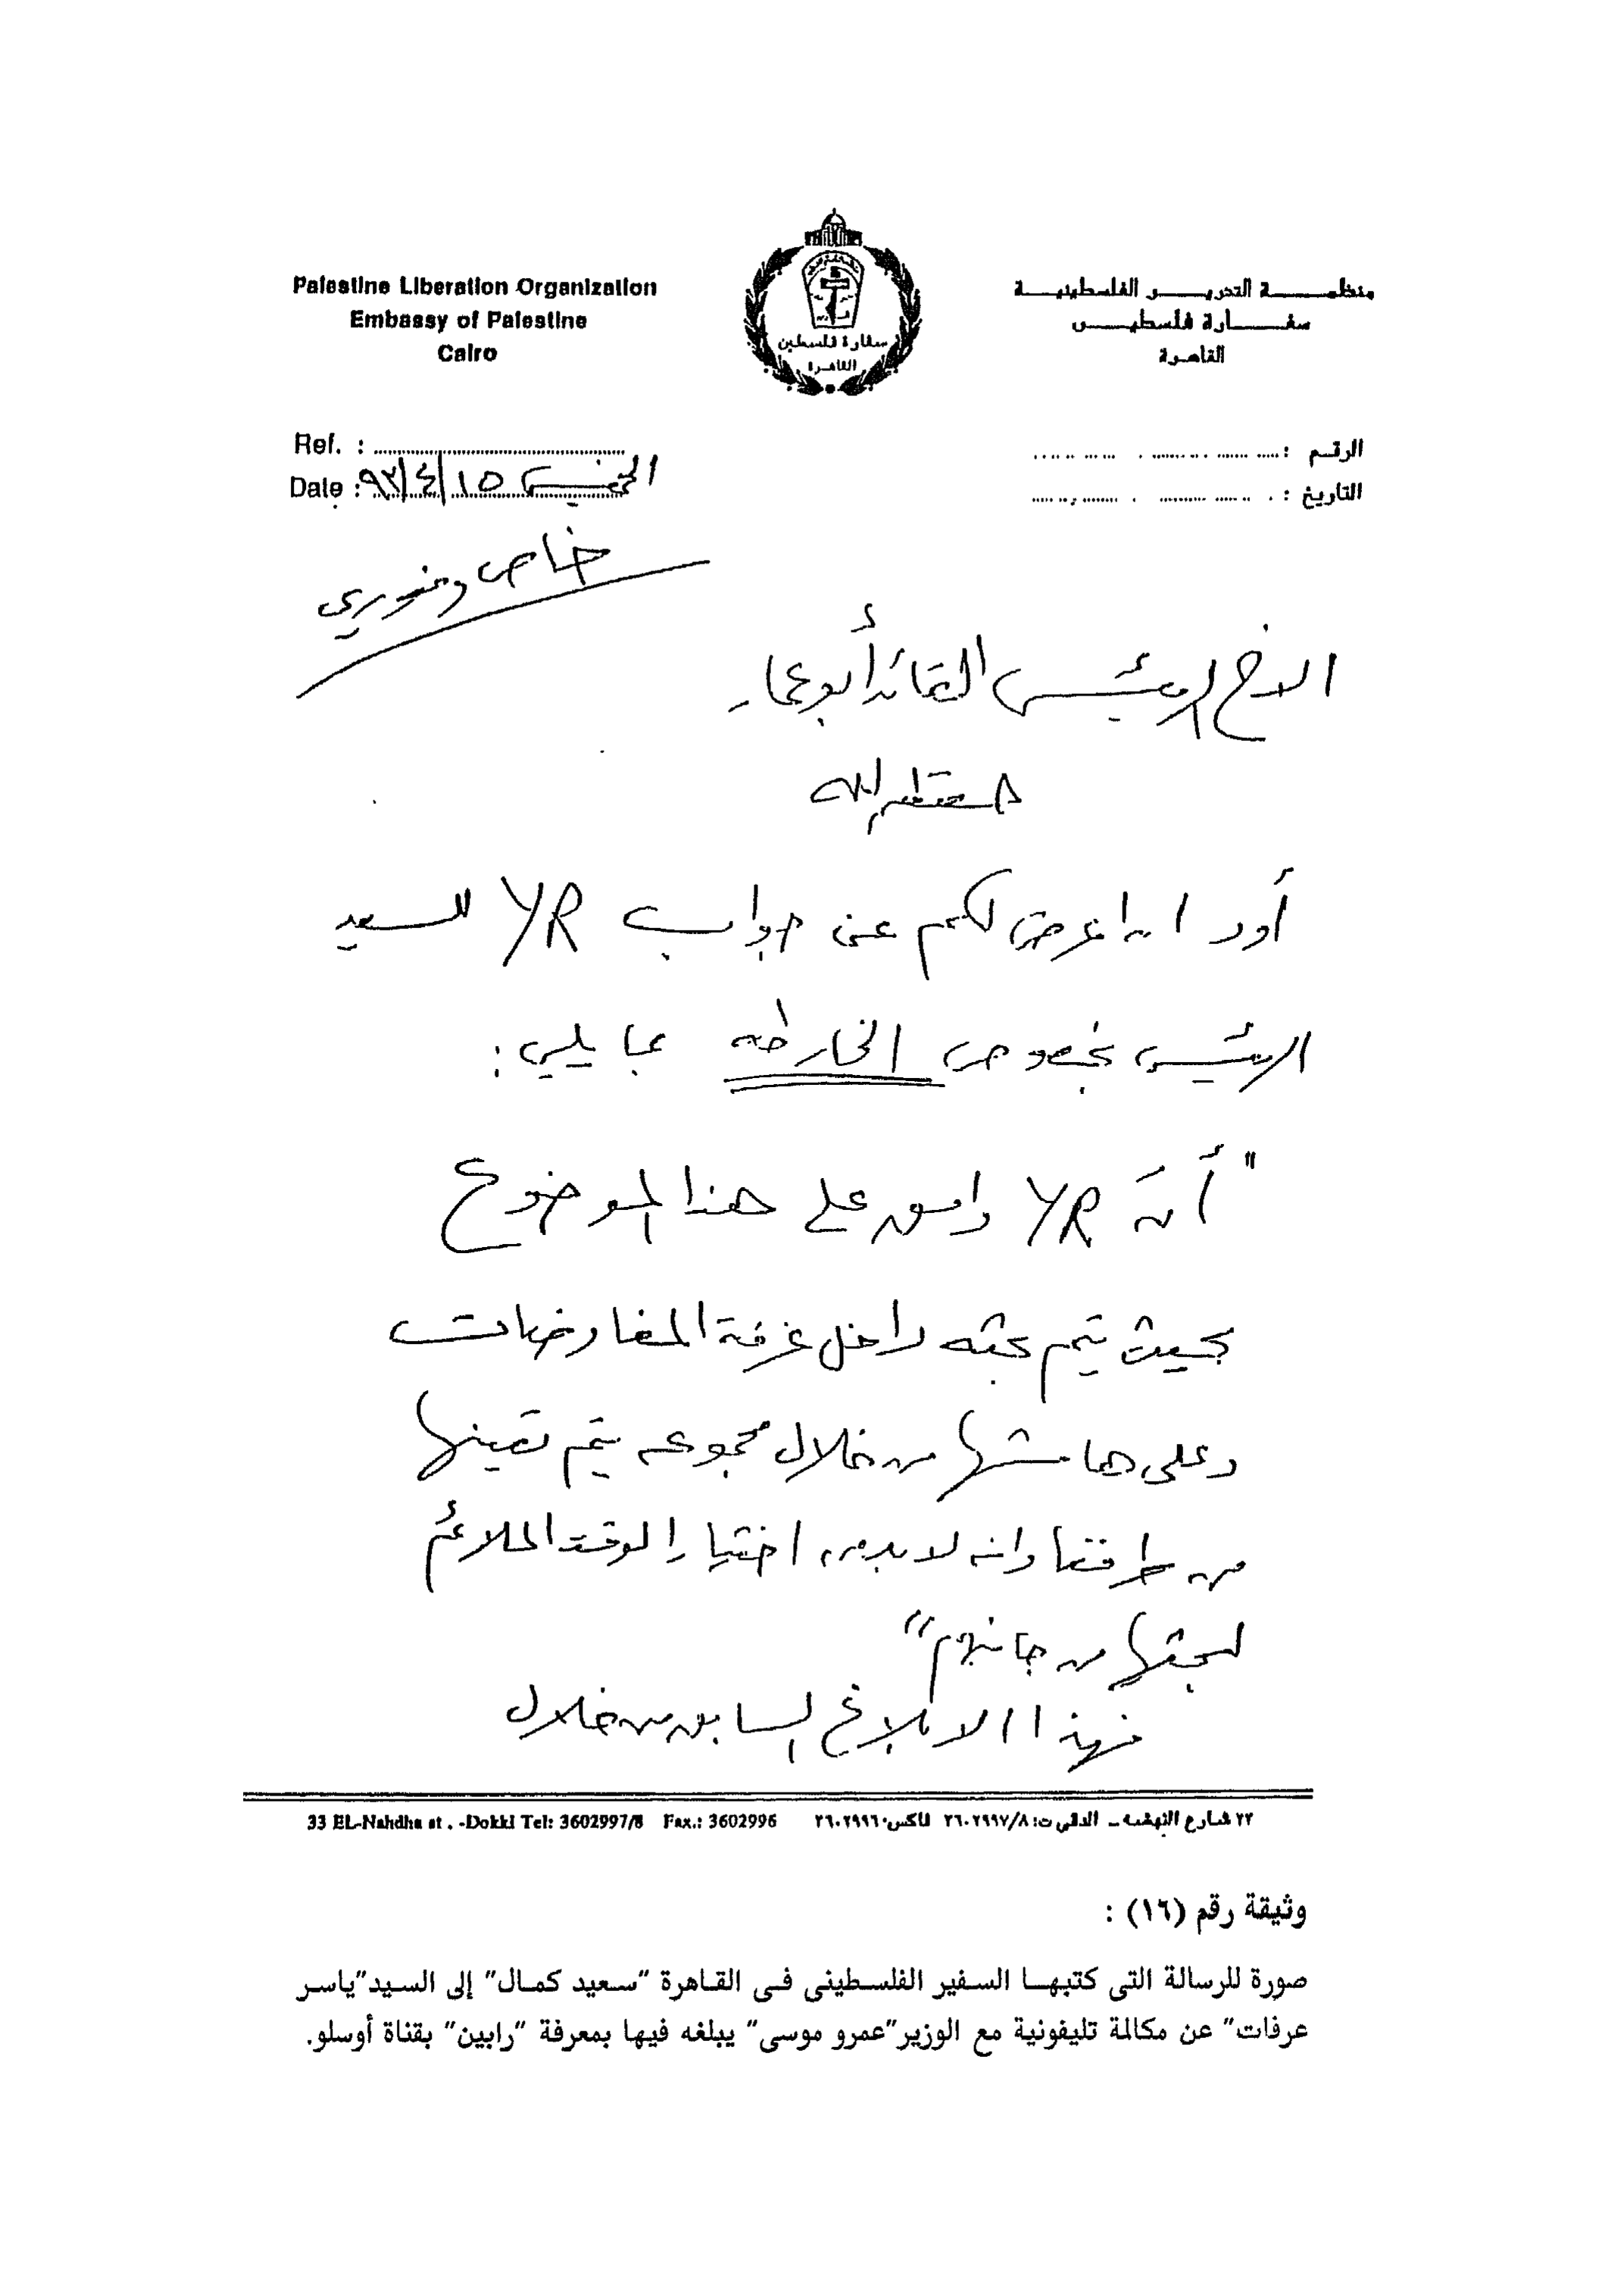 Palestine Liberation Organization
Embassy of Palestine
Cairo
منظمة التحرير الفلسطينية
سفارة فلسطين
القاهرة
سفارة فلسطين
القاهرة
Ref. :
Date : الخميس ١٥/٤/٩٣
الرقم :
التاريخ :
خاص وفوري
الاخ الرئيس القائد أبو عمار
حفظكم الله
أود ان اعرض لكم عن جواب YR للسيد
الرئيس بخصوص الخارطه بما يلي :
" أن YR وافق على هذا الموضوع
بحيث يتم بحثه داخل غرفة المفاوضات
وعلى هامشها من خلال مجموعه يتم تعينها
من طرفنا وانه لا بد من اختيار الوقت الملائم
لبحثها من جانبهم "
فهذا الابلاغ السابق من خلال
33 EL-Nahdha st . -Dokki Tel: 3602997/8 Fax.: 3602996
٣٣ شارع النهضه - الدقي ت: ٣٦٠٢٩٩٧/٨ فاكس: ٣٦٠٢٩٩٦
وثيقة رقم (١٦) :
صورة للرسالة التى كتبهـا السفير الفلسطينى فـى القاهرة "سعيد كمال" إلى السيد"ياسر
عرفات" عن مكالمة تليفونية مع الوزير"عمرو موسى" يبلغه فيها بمعرفة "رابين" بقناة أوسلو.